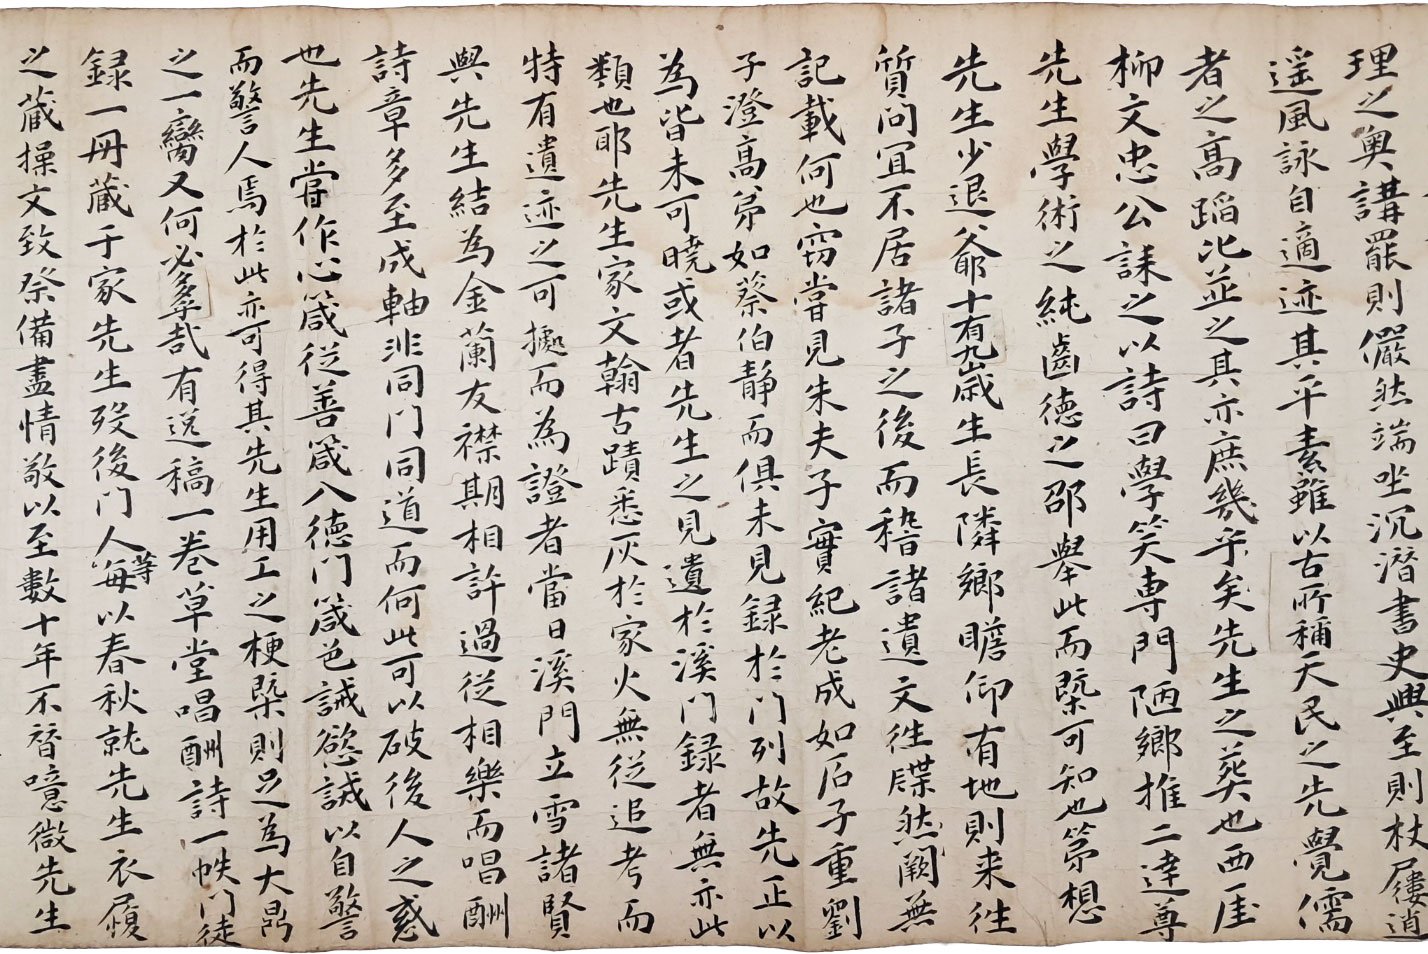 理之奧講罷則儼然端坐沉潛書史興至則杖屨逍
遥風詠自適迹其平素雖以古所稱天民之先覺儒
者之髙蹈比並之其亦庶幾乎矣先生之葬也西厓
柳文忠公誄之以詩曰學笑専門陋鄉推二達尊
先生學術之純齒德之邵舉此而槩可知也第想
先生少退爺十有九歳生長隣鄉瞻仰有地則来往
質問宜不居諸子之後而稽諸遺文徃牒然闕無
記載何也窃甞見朱夫子實紀老成如石子重劉
子澄髙弟如蔡伯静而俱未見録於门列故先正以
為皆未可曉或者先生之見遺於溪门録者無亦此
類也耶先生家文翰古蹟悉灰於家火無從追考而
特有遺迹之可據而為證者當日溪門立雪諸賢
與先生結為金蘭友襟期相許過從相樂而唱酬
詩章多至成軸非同门同道而何此可以破後人之惑
也先生嘗作心箴從善箴八德门箴色誡慾誡以自警
而警人焉於此亦可得其先生用工之梗槩則足為大鼎
之一臠又何必多乎哉有送稿一卷草堂唱酬詩一帙门徒
録一冊蔵于家先生歿後门人等每以春秋就先生衣履
之蔵操文致祭備盡情敬以至數十年不替噫微先生